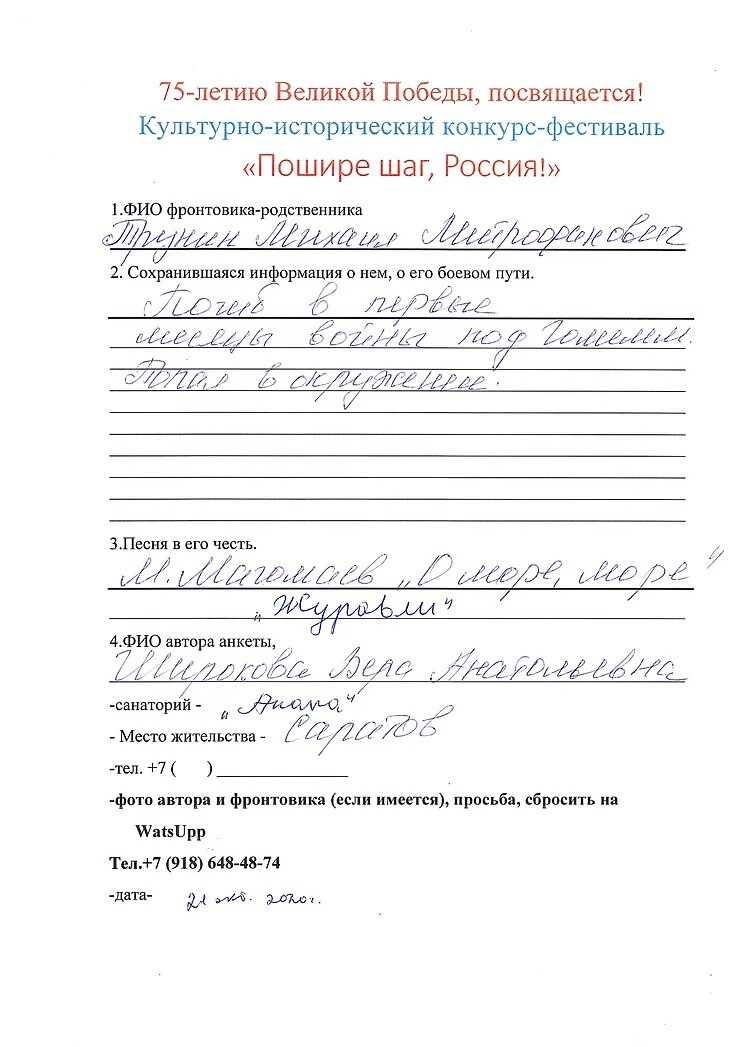 75-летию Великой Победы, посвящается!
Культурно-исторический конкурс-фестиваль
«Пошире шаг, Россия!»
1.ФИО фронтовика-родственника
Трунин Михаил Митрофанович
2. Сохранившаяся информация о нем, о его боевом пути.
Погиб в первые
месяцы войны под Гомелем.
Попал в окружение.
3.Песня в его честь.
М. Магомаев „О море, море"
„Журавли"
4.ФИО автора анкеты,
Широкова Вера Анатольевна
-санаторий - „Анапа"
- Место жительства - Саратов
-тел. +7 ( ) _______________
-фото автора и фронтовика (если имеется), просьба, сбросить на
WatsUpp
Тел.+7 (918) 648-48-74
-дата- 21 окт. 2020г.